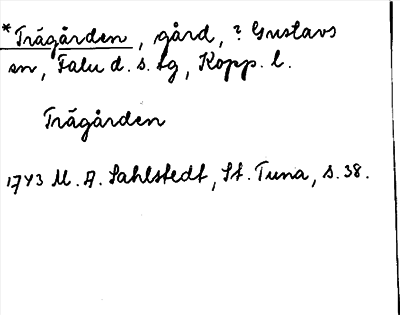 *Trägården, gård, ? Gustavs
sn, Falu d. s. fg, Kopp. l.
Trägården
1743 M. A. Sahlstedt, St. Tuna, s. 38.